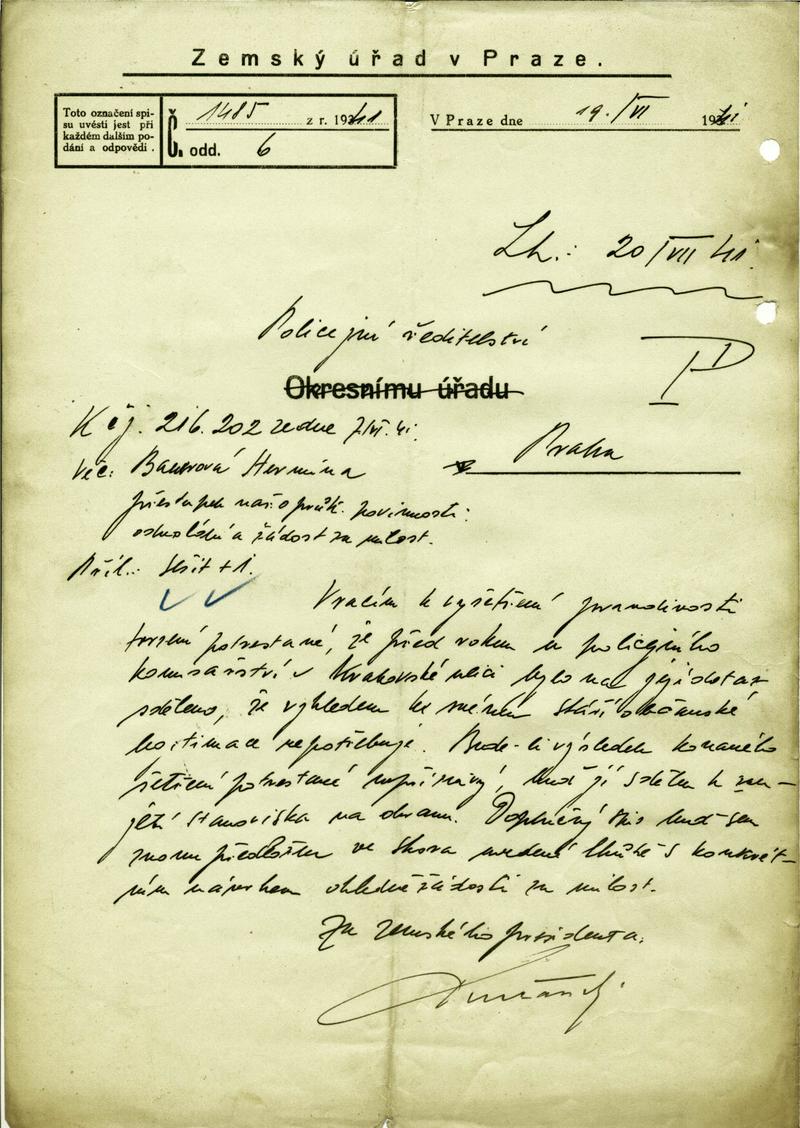 Zemský úřad v Praze.
Toto označení spi-
su uvésti jest při
každém dalším po-
dání a odpovědi.
Č. 1485 z r. 1941
odd. 6
V Praze dne 19./VI 1941
Lh.: 20/VII 41
Policejní ředitelství
Okresnímu úřadu
K čj. 216.202 ze dne 7/VI. 41.
Praha
Věc: Bauerová Hermína
přestupek povinnosti:
odvolání a žádost za milost.
Příl.: Sešit + 1.
Vracím k vyšetření pravdivosti
tvrzení potrestané, že před rokem u policejního
komisařství v Krakovské ulici bylo na její dotaz
sděleno, že vzhledem ke svému stáří občanské
legitimace nepotřebuje. Bude-li výsledek konaného
šetření potrestané nepříznivý, buď jí sdělen k zau-
jetí stanoviska na obranu. Doplněný spis buď sem
znovu předložen ve shora uvedené lhůtě s konkrét-
ním návrhem ohledně žádosti za milost.
Za zemského presidenta: